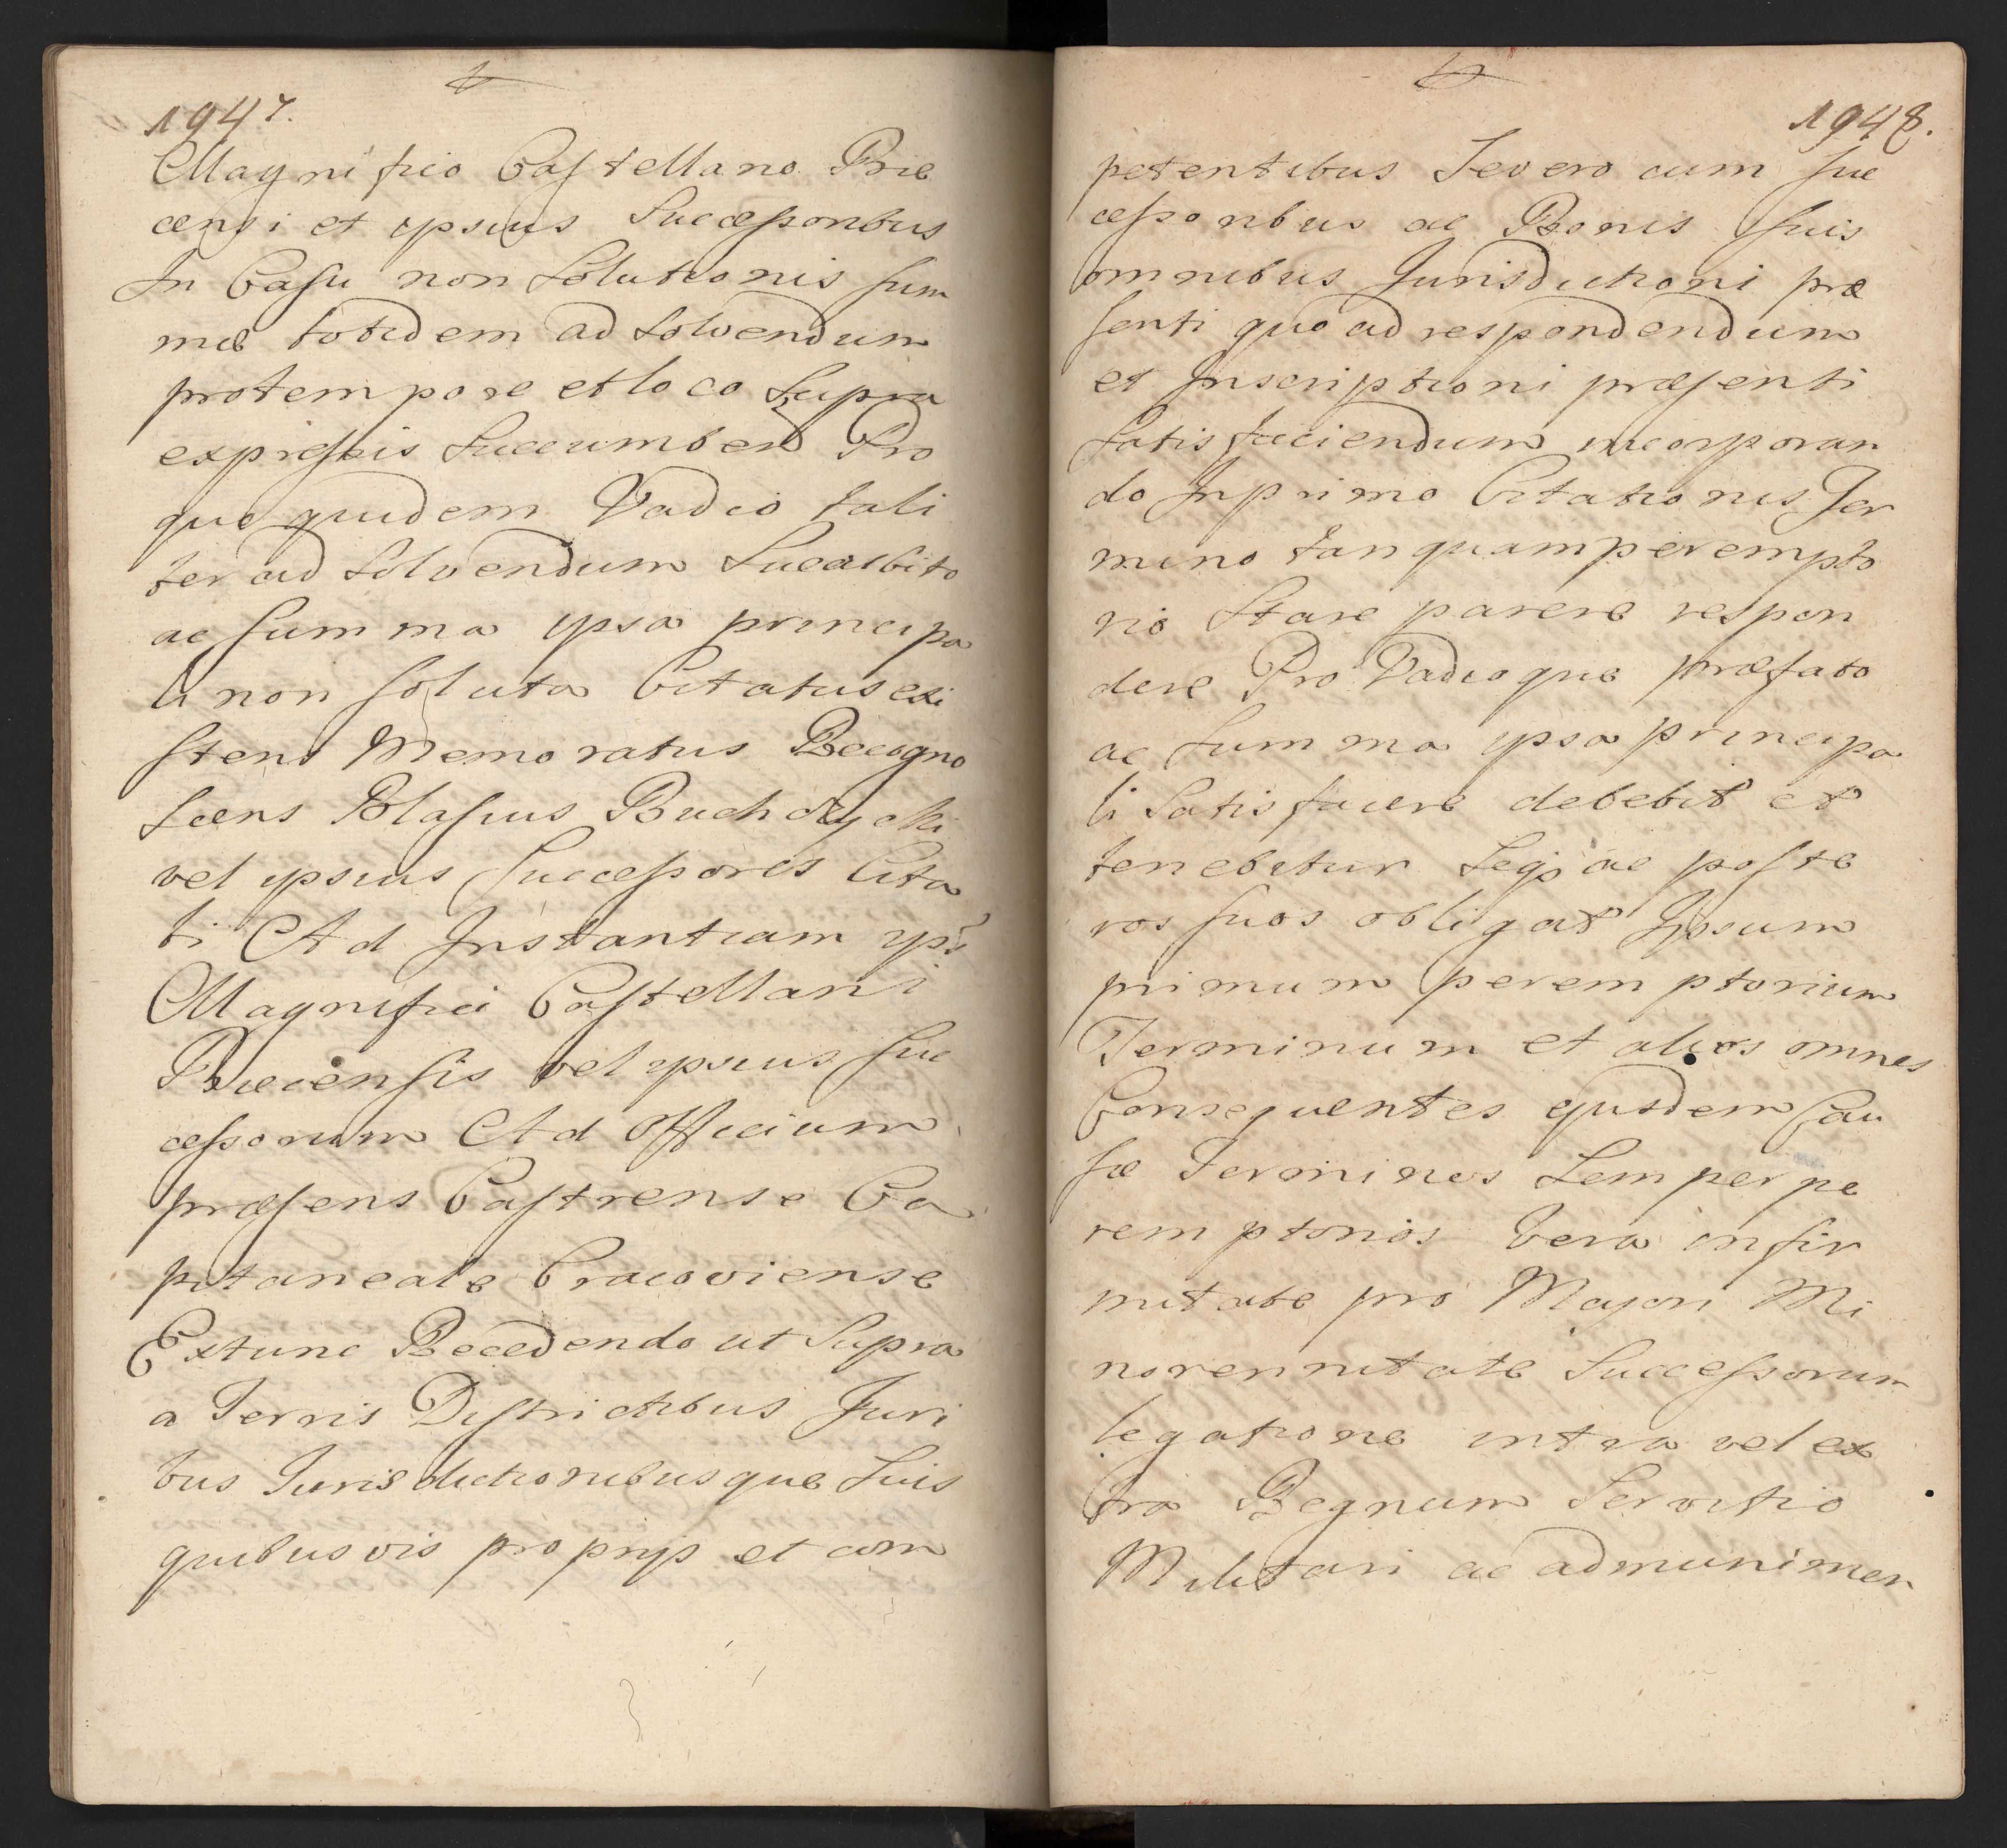 1947.
Magnifico Castellano Brie
censi et ipsius Successoribus
In Casu non Solutionis sum
mæ totidem ad solvendum
pro tempore et loco Supra
expressis Succumben Pro
quo quidem Vadio tali
ter ad Solvendum Succubito
ac summa ipsa principa
li non soluta Citatus exi
stens Memoratus Recogno
scens Blasius
vel ipsius Successores Cita
ti Ad Instantiam ips
Magnifici Castellani
Briecensis vel ipsius suc
cessorum Ad Officium
præsens Castrense Ca
pitaneale Cracoviense
Extunc Recedendo ut Supra
a Terris Districtibus Juri
bus Jurisdictionibusque Suis
quibusvis proprijs et com
1948.
petentibus Se vero cum suc
cessoribus ac Bonis suis
omnibus Jurisdictioni præ
senti quo ad respondendum
et Inscriptioni præsenti
Satisfaciendum incorporan
do In primo Citationis Ter
mino tanquam perempto
rio Stare parere respon
dere Pro Vadioque præfato
ac Summa ipsa principa
li Satisfacere debebit et
tenebitur Seqz ac poste
ros suos obligat Ipsum
primum peremptorium
Terminum et alios omnes
Consequentes ejusdem Cau
sæ Terminos Semper pe
remptorios Vera infir
mitate pro Majori Mi
norennitate Successorum
legatione intra vel ex
tra Regnum Servitio
Militari ac admunimen